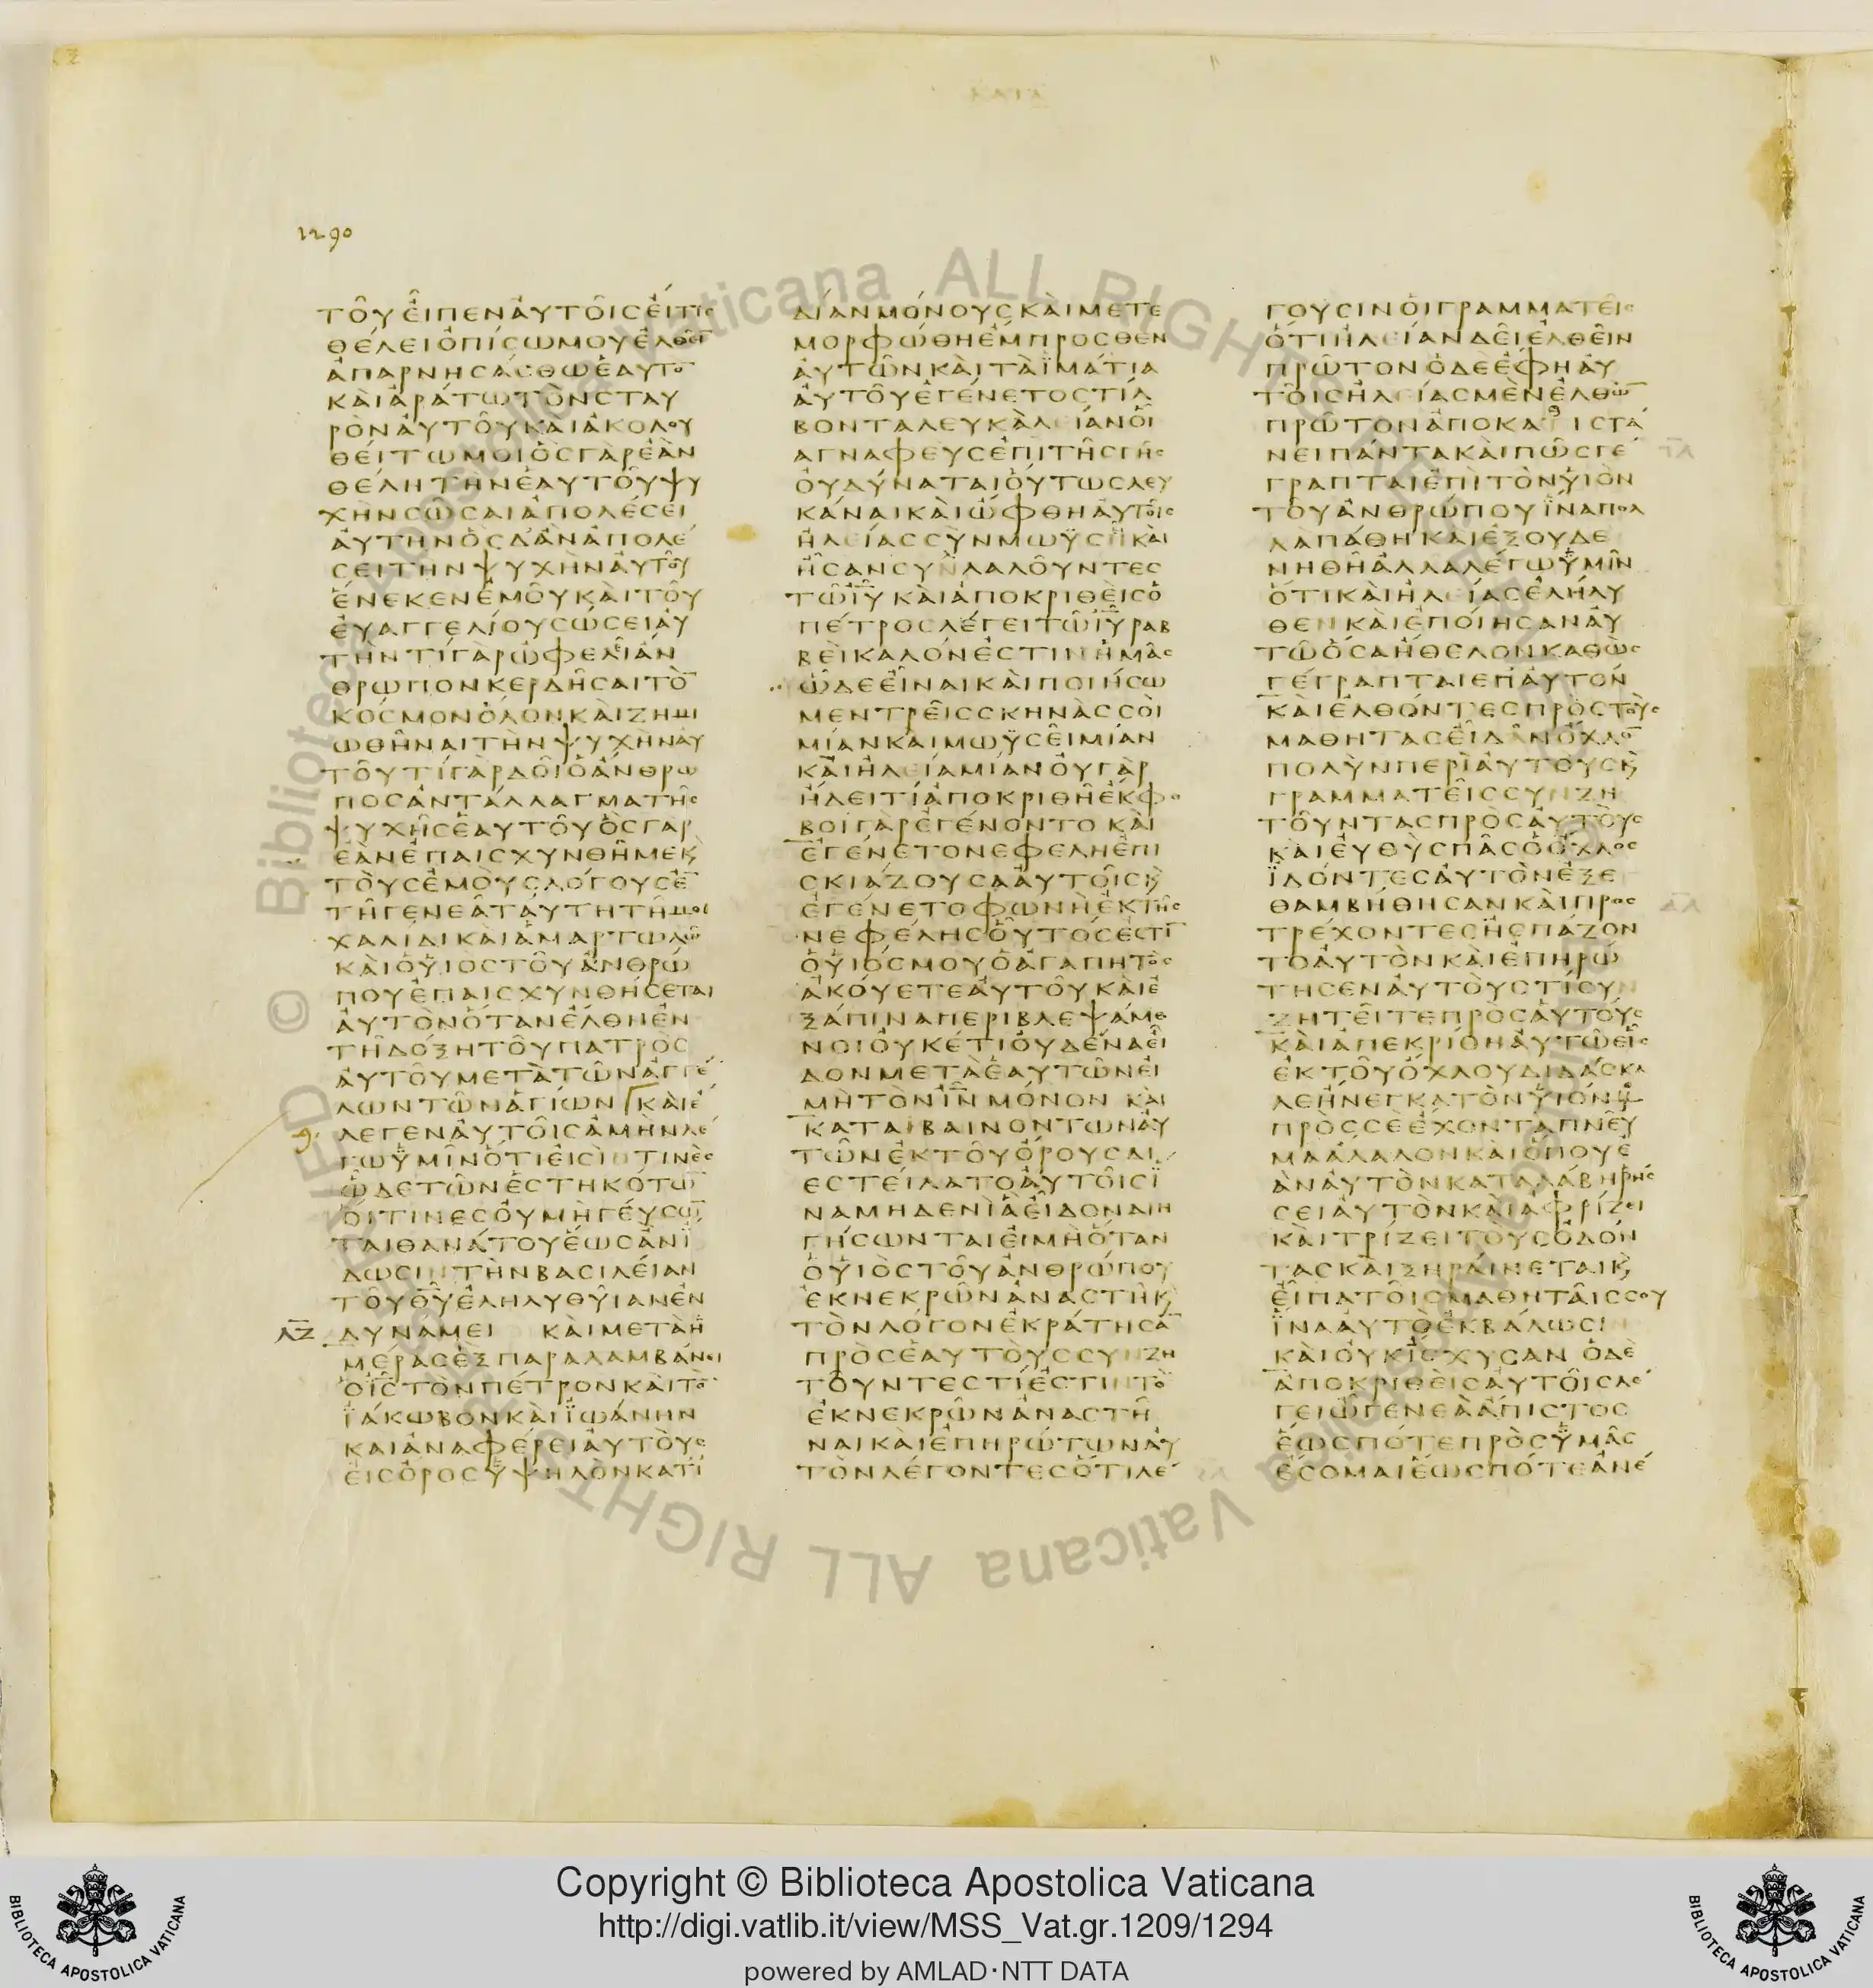 ΚΑΤΑ
1290
ΤΟΥ ΕΙΠΕΝ ΑΥΤΟΙΣ ΕΙ ΤΙΣ
ΘΕΛΕΙ ΟΠΙΣΩ ΜΟΥ ΕΛΘΕΙ̅
ΑΠΑΡΝΗΣΑΣΘΩ ΕΑΥΤΟ̅
ΚΑΙ ΑΡΑΤΩ ΤΟΝ ΣΤΑΥ
ΡΟΝ ΑΥΤΟΥ ΚΑΙ ΑΚΟΛΟΥ
ΘΕΙΤΩ ΜΟΙ ΟΣ ΓΑΡ ΕΑΝ
ΘΕΛΗ ΤΗΝ ΕΑΥΤΟΥ ΨΥ
ΧΗΝ ΣΩΣΑΙ ΑΠΟΛΕΣΕΙ
ΑΥΤΗΝ ΟΣ Δ ΑΝ ΑΠΟΛΕ
ΣΕΙ ΤΗΝ ΨΥΧΗΝ ΑΥΤΟΥ
ΕΝΕΚΕΝ ΕΜΟΥ ΚΑΙ ΤΟΥ
ΕΥΑΓΓΕΛΙΟΥ ΣΩΣΕΙ ΑΥ
ΤΗΝ ΤΙ ΓΑΡ ΩΦΕΛΕΙ ΑΝ
ΘΡΩΠΟΝ ΚΕΡΔΗΣΑΙ ΤΟ̅
ΚΟΣΜΟΝ ΟΛΟΝ ΚΑΙ ΖΗΜΙ
ΩΘΗΝΑΙ ΤΗΝ ΨΥΧΗΝ ΑΥ
ΤΟΥ ΤΙ ΓΑΡ ΔΟΙ Ο ΑΝΘΡΩ
ΠΟΣ ΑΝΤΑΛΛΑΓΜΑ ΤΗΣ
ΨΥΧΗΣ ΕΑΥΤΟΥ ΟΣ ΓΑΡ
ΕΑΝ ΕΠΑΙΣΧΥΝΘΗ ΜΕ Κ̀
ΤΟΥΣ ΕΜΟΥΣ ΛΟΓΟΥΣ Ε̅
ΤΗ ΓΕΝΕΑ ΤΑΥΤΗ ΤΗ ΜΟΙ
ΧΑΛΙΔΙ ΚΑΙ ΑΜΑΡΤΩΛΩ
ΚΑΙ Ο ΥΙΟΣ ΤΟΥ ΑΝΘΡΩ
ΠΟΥ ΕΠΑΙΣΧΥΝΘΗΣΕΤΑΙ
ΑΥΤΟΝ ΟΤΑΝ ΕΛΘΗ ΕΝ
ΤΗ ΔΟΞΗ ΤΟΥ ΠΑΤΡΟΣ
ΑΥΤΟΥ ΜΕΤΑ ΤΩΝ ΑΓΓΕ
ΛΩΝ ΤΩΝ ΑΓΙΩΝ ΚΑΙ Ε
ΛΕΓΕΝ ΑΥΤΟΙΣ ΑΜΗΝ ΛΕ
ΓΩ ΥΜΙΝ ΟΤΙ ΕΙΣΙΝ ΤΙΝΕΣ
ΩΔΕ ΤΩΝ ΕΣΤΗΚΟΤΩ̅
ΟΙΤΙΝΕΣ ΟΥ ΜΗ ΓΕΥΣΩ̅
ΤΑΙ ΘΑΝΑΤΟΥ ΕΩΣ ΑΝ Ϊ
ΔΩΣΙΝ ΤΗΝ ΒΑΣΙΛΕΙΑΝ
ΤΟΥ Θ̅Υ̅ ΕΛΗΛΥΘΥΙΑΝ ΕΝ
ΛΖ ΔΥΝΑΜΕΙ ΚΑΙ ΜΕΤΑ Η
ΜΕΡΑΣ ΕΞ ΠΑΡΑΛΑΜΒΑΝΕΙ
Ο Ι̅Σ̅ ΤΟΝ ΠΕΤΡΟΝ ΚΑΙ ΤΟ̅
ΪΑΚΩΒΟΝ ΚΑΙ ΪΩΑΝΗΝ
ΚΑΙ ΑΝΑΦΕΡΕΙ ΑΥΤΟΥΣ
ΕΙΣ ΟΡΟΣ ΥΨΗΛΟΝ ΚΑΤ Ϊ
ΔΙΑΝ ΜΟΝΟΥΣ ΚΑΙ ΜΕΤΕ
ΜΟΡΦΩΘΗ ΕΜΠΡΟΣΘΕΝ
ΑΥΤΩΝ ΚΑΙ ΤΑ ΪΜΑΤΙΑ
ΑΥΤΟΥ ΕΓΕΝΕΤΟ ΣΤΙΛ
ΒΟΝΤΑ ΛΕΥΚΑ ΛΕΙΑΝ ΟΙ
Α ΓΝΑΦΕΥΣ ΕΠΙ ΤΗΣ ΓΗΣ
ΟΥ ΔΥΝΑΤΑΙ ΟΥΤΩΣ ΛΕΥ
ΚΑΝΑΙ ΚΑΙ ΩΦΘΗ ΑΥΤΟΙΣ
ΗΛΕΙΑΣ ΣΥΝ ΜΩΫΣΗ ΚΑΙ
ΗΣΑΝ ΣΥΝΛΑΛΟΥΝΤΕΣ
ΤΩ Ι̅Υ̅ ΚΑΙ ΑΠΟΚΡΙΘΕΙΣ Ο
ΠΕΤΡΟΣ ΛΕΓΕΙ ΤΩ Ι̅Υ̅ ΡΑΒ
ΒΕΙ ΚΑΛΟΝ ΕΣΤΙΝ ΗΜΑΣ
ΩΔΕ ΕΙΝΑΙ ΚΑΙ ΠΟΙΗΣΩ
ΜΕΝ ΤΡΕΙΣ ΣΚΗΝΑΣ ΣΟΙ
ΜΙΑΝ ΚΑΙ ΜΩΫΣΕΙ ΜΙΑΝ
ΚΑΙ ΗΛΕΙΑ ΜΙΑΝ ΟΥ ΓΑΡ
ΗΔΕΙ ΤΙ ΑΠΟΚΡΙΘΗ ΕΚΦΟ
ΒΟΙ ΓΑΡ ΕΓΕΝΟΝΤΟ ΚΑΙ
ΕΓΕΝΕΤΟ ΝΕΦΕΛΗ ΕΠΙ
ΣΚΙΑΖΟΥΣΑ ΑΥΤΟΙΣ Κ̀
ΕΓΕΝΕΤΟ ΦΩΝΗ ΕΚ ΤΗΣ
ΝΕΦΕΛΗΣ ΟΥΤΟΣ ΕΣΤΙ̅
Ο ΥΙΟΣ ΜΟΥ Ο ΑΓΑΠΗΤΟΣ
ΑΚΟΥΕΤΕ ΑΥΤΟΥ ΚΑΙ Ε
ΞΑΠΙΝΑ ΠΕΡΙΒΛΕΨΑΜΕ
ΝΟΙ ΟΥΚΕΤΙ ΟΥΔΕΝΑ ΕΙ
ΔΟΝ ΜΕΤΑ ΕΑΥΤΩΝ ΕΙ
ΜΗ ΤΟΝ Ι̅Ν̅ ΜΟΝΟΝ ΚΑΙ
ΚΑΤΑΒΑΙΝΟΝΤΩΝ ΑΥ
ΤΩΝ ΕΚ ΤΟΥ ΟΡΟΥΣ ΔΙ
ΕΣΤΕΙΛΑΤΟ ΑΥΤΟΙΣ Ϊ
ΝΑ ΜΗΔΕΝΙ Α ΕΙΔΟΝ ΔΙΗ
ΓΗΣΩΝΤΑΙ ΕΙ ΜΗ ΟΤΑΝ
Ο ΥΙΟΣ ΤΟΥ ΑΝΘΡΩΠΟΥ
ΕΚ ΝΕΚΡΩΝ ΑΝΑΣΤΗ Κ̀
ΤΟΝ ΛΟΓΟΝ ΕΚΡΑΤΗΣΑ̅
ΠΡΟΣ ΕΑΥΤΟΥΣ ΣΥΝΖΗ
ΤΟΥΝΤΕΣ ΤΙ ΕΣΤΙΝ ΤΟ
ΕΚ ΝΕΚΡΩΝ ΑΝΑΣΤΗ
ΝΑΙ ΚΑΙ ΕΠΗΡΩΤΩΝ ΑΥ
ΤΟΝ ΛΕΓΟΝΤΕΣ ΟΤΙ ΛΕ
ΓΟΥΣΙΝ ΟΙ ΓΡΑΜΜΑΤΕΙΣ
ΟΤΙ ΗΛΕΙΑΝ ΔΕΙ ΕΛΘΕΙΝ
ΠΡΩΤΟΝ Ο ΔΕ ΕΦΗ ΑΥ
ΤΟΙΣ ΗΛΕΙΑΣ ΜΕΝ ΕΛΘΩ̅
ΠΡΩΤΟΝ ΑΠΟΚΑΘΙΣΤΑ
ΝΕΙ ΠΑΝΤΑ ΚΑΙ ΠΩΣ ΓΕ
ΓΡΑΠΤΑΙ ΕΠΙ ΤΟΝ ΥΙΟΝ
ΤΟΥ ΑΝΘΡΩΠΟΥ ΪΝΑ ΠΟΛ
ΛΑ ΠΑΘΗ ΚΑΙ ΕΞΟΥΔΕ
ΝΗΘΗ ΑΛΛΑ ΛΕΓΩ ΥΜΙΝ
ΟΤΙ ΚΑΙ ΗΛΕΙΑΣ ΕΛΗΛΥ
ΘΕΝ ΚΑΙ ΕΠΟΙΗΣΑΝ ΑΥ
ΤΩ ΟΣΑ ΗΘΕΛΟΝ ΚΑΘΩΣ
ΓΕΓΡΑΠΤΑΙ ΕΠ ΑΥΤΟΝ
ΚΑΙ ΕΛΘΟΝΤΕΣ ΠΡΟΣ ΤΟΥΣ
ΜΑΘΗΤΑΣ ΕΙΔΑΝ ΟΧΛΟ̅
ΠΟΛΥΝ ΠΕΡΙ ΑΥΤΟΥΣ Κ̀
ΓΡΑΜΜΑΤΕΙΣ ΣΥΝΖΗ
ΤΟΥΝΤΑΣ ΠΡΟΣ ΑΥΤΟΥΣ
ΚΑΙ ΕΥΘΥΣ ΠΑΣ Ο ΟΧΛΟΣ
ΪΔΟΝΤΕΣ ΑΥΤΟΝ ΕΞΕ
ΘΑΜΒΗΘΗΣΑΝ ΚΑΙ ΠΡΟΣ
ΤΡΕΧΟΝΤΕΣ ΗΣΠΑΖΟΝ
ΤΟ ΑΥΤΟΝ ΚΑΙ ΕΠΗΡΩ
ΤΗΣΕΝ ΑΥΤΟΥΣ ΤΙ ΣΥΝ
ΖΗΤΕΙΤΕ ΠΡΟΣ ΑΥΤΟΥΣ
ΚΑΙ ΑΠΕΚΡΙΘΗ ΑΥΤΩ ΕΙΣ
ΕΚ ΤΟΥ ΟΧΛΟΥ ΔΙΔΑΣΚΑ
ΛΕ ΗΝΕΓΚΑ ΤΟΝ ΥΙΟΝ ΜΟΥ
ΠΡΟΣ ΣΕ ΕΧΟΝΤΑ ΠΝΕΥ
ΜΑ ΑΛΑΛΟΝ ΚΑΙ ΟΠΟΥ Ε
ΑΝ ΑΥΤΟΝ ΚΑΤΑΛΑΒΗ ΡΗΣ
ΣΕΙ ΑΥΤΟΝ ΚΑΙ ΑΦΡΙΖΕΙ
ΚΑΙ ΤΡΙΖΕΙ ΤΟΥΣ ΟΔΟΝ
ΤΑΣ ΚΑΙ ΞΗΡΑΙΝΕΤΑΙ Κ̀
ΕΙΠΑ ΤΟΙΣ ΜΑΘΗΤΑΙΣ ΣΟΥ
ΪΝΑ ΑΥΤΟ ΕΚΒΑΛΩΣΙΝ
ΚΑΙ ΟΥΚ ΙΣΧΥΣΑΝ Ο ΔΕ
ΑΠΟΚΡΙΘΕΙΣ ΑΥΤΟΙΣ ΛΕ
ΓΕΙ Ω ΓΕΝΕΑ ΑΠΙΣΤΟΣ
ΕΩΣ ΠΟΤΕ ΠΡΟΣ ΥΜΑΣ
ΕΣΟΜΑΙ ΕΩΣ ΠΟΤΕ ΑΝΕ
© Biblioteca Apostolica Vaticana ALL RIGHTS RESERVED
Copyright © Biblioteca Apostolica Vaticana
http://digi.vatlib.it/view/MSS_Vat.gr.1209/1294
powered by AMLAD·NTT DATA
BIBLIOTECA APOSTOLICA VATICANA
BIBLIOTECA APOSTOLICA VATICANA